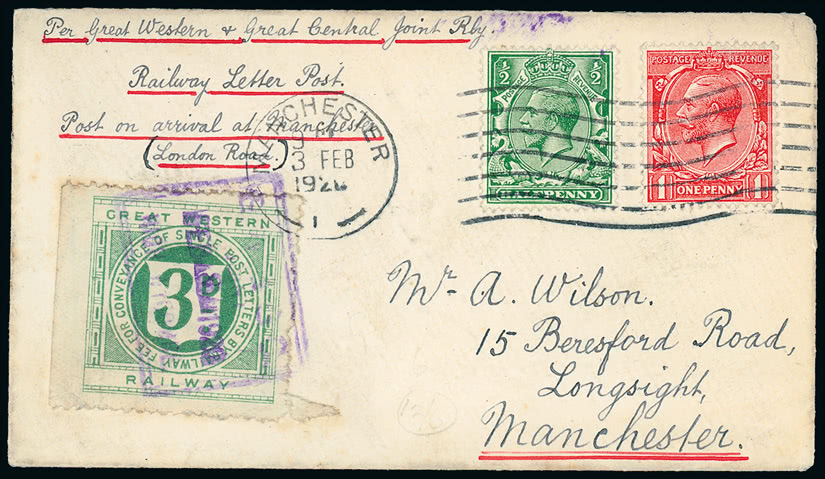 Per Great Western & Great Central Joint Rly.
Railway Letter Post.
Post on arrival at Manchester
(London Road.)
MANCHESTER
3 FEB
192
1
½ ½
POSTAGE REVENUE
HALFPENNY
POSTAGE REVENUE
1 ONE PENNY 1
GREAT WESTERN
FEE FOR CONVEYANCE OF SINGLE POST LETTERS BY RAILWAY
3D
RAILWAY
Mr. A. Wilson.
15 Beresford Road,
Longsight,
Manchester.